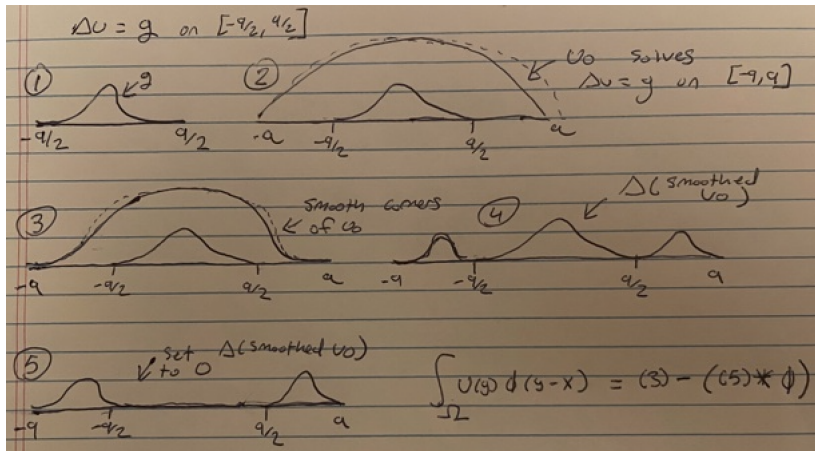 ΔU = g on [-a/2, a/2]
① g
-a/2 a/2
② U₀ solves
ΔU = g on [-a, a]
-a -a/2 a/2 a
③ Smooth corners
of U₀
-a -a/2 a/2 a
④ Δ(smoothed
U₀)
-a -a/2 a/2 a
⑤ set Δ(smoothed U₀)
to 0
-a -a/2 a/2 a
∫_Ω U(y) ϕ(y-x) = (3) - ((5) * ϕ)